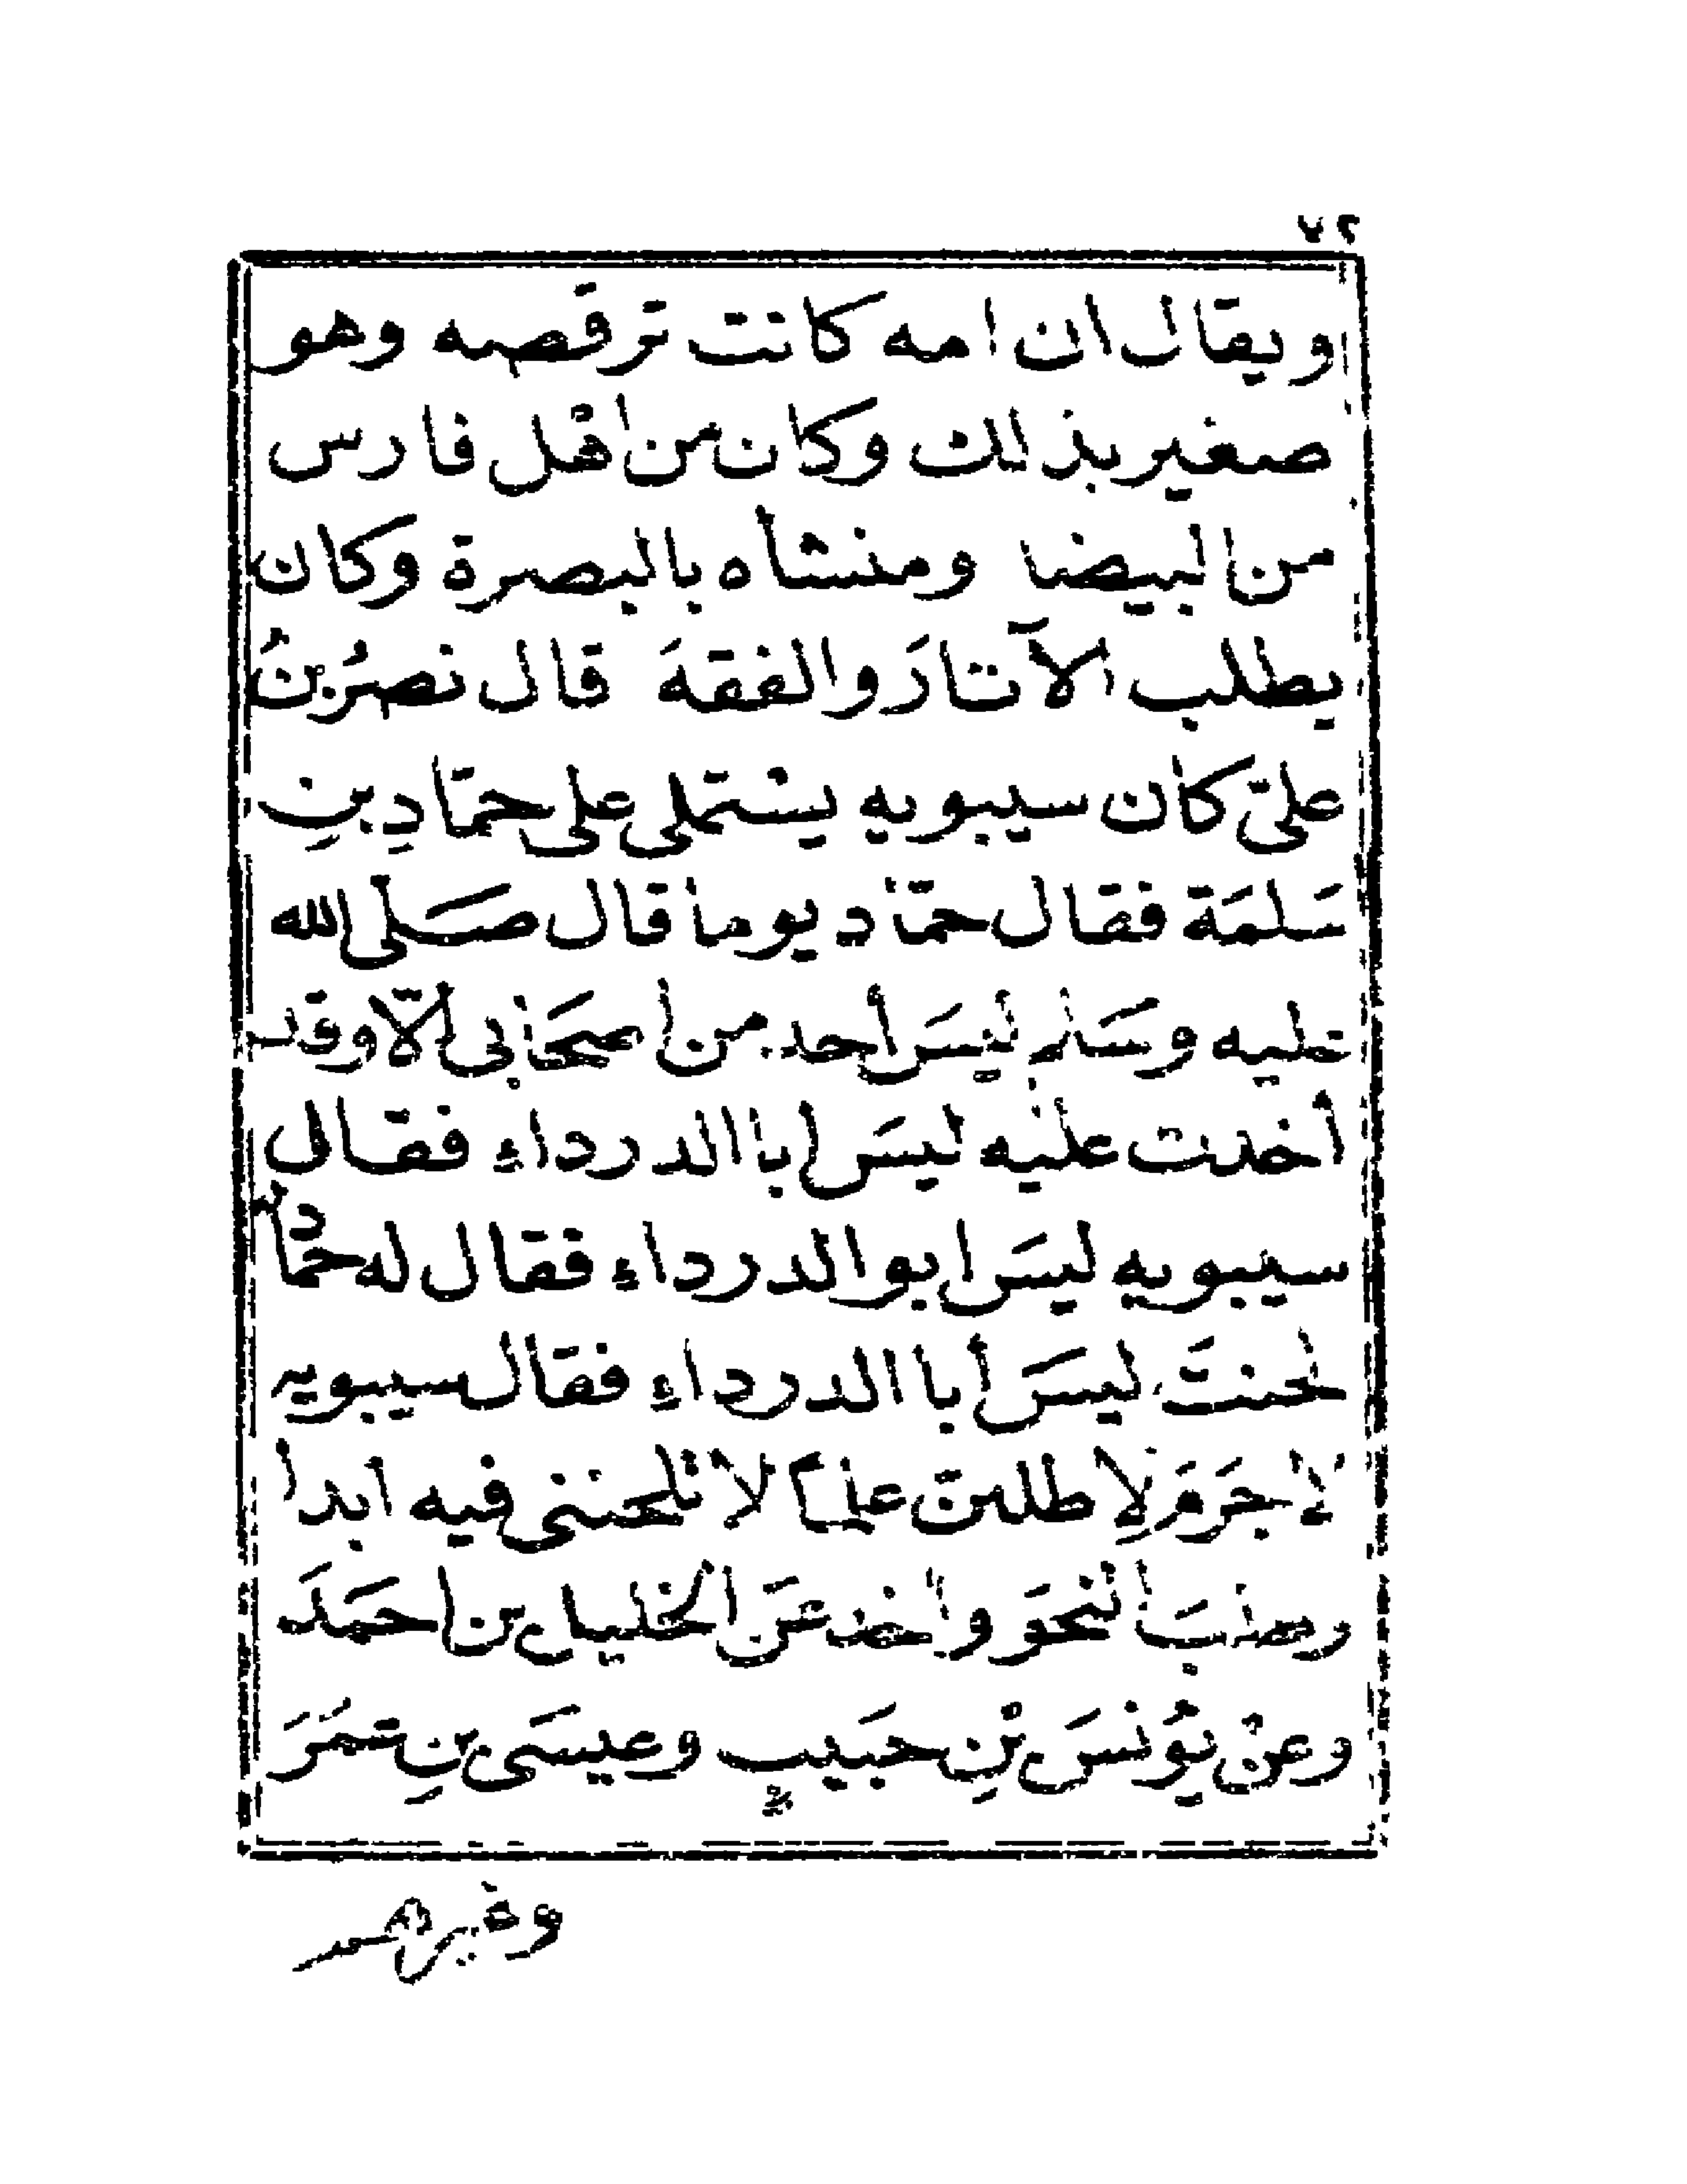 ٧٢
ويقال ان امه كانت ترقصه وهو
صغير بذلك وكان من اهل فارس
من البيضا ومنشأه بالبصرة وكان
يطلب الآثارَ والفقهَ قال نصرُ بنُ
علىّ كان سيبويه يستملى على حمّادِ بنِ
سَلمَة فقال حمّاد يوما قال صَلى الله
عليه وسَلم ليسَ أحد من اصحَابى الّا وقد
أخذت عليه ليسَ ابا الدرداء فقال
سيبويه ليسَ ابو الدرداء فقال له حمّادٌ
لحنتَ ليسَ أبا الدرداءِ فقال سيبويه
لا جَرَمَ لاطلبن علما لا تلحننى فيه ابدا
وطلبَ النحوَ واخذ عَن الخليل بن احمَدَ
وعنْ يُونسَ بْنِ حَبيبٍ وعيسَى بنِ عمَرَ
وغيرهم